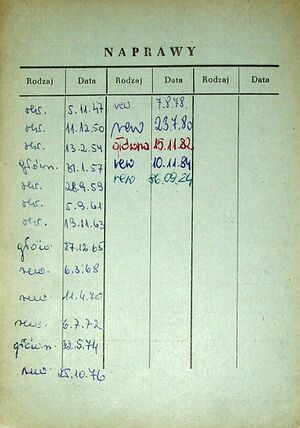 NAPRAWY
Rodzaj Data Rodzaj Data Rodzaj Data
5.11.47 rew 7.8.78
11.12.50 rew 23.7.80
13.2.54 główna 15.11.82
główn. 31.1.57 rew 10.11.84
28.9.59 rew 86.09.24
5.9.61
19.11.63
główn. 27.12.65
rew. 6.3.68
rew. 11.4.70
rew. 6.7.72
główn. 22.5.74
rew. 25.10.76